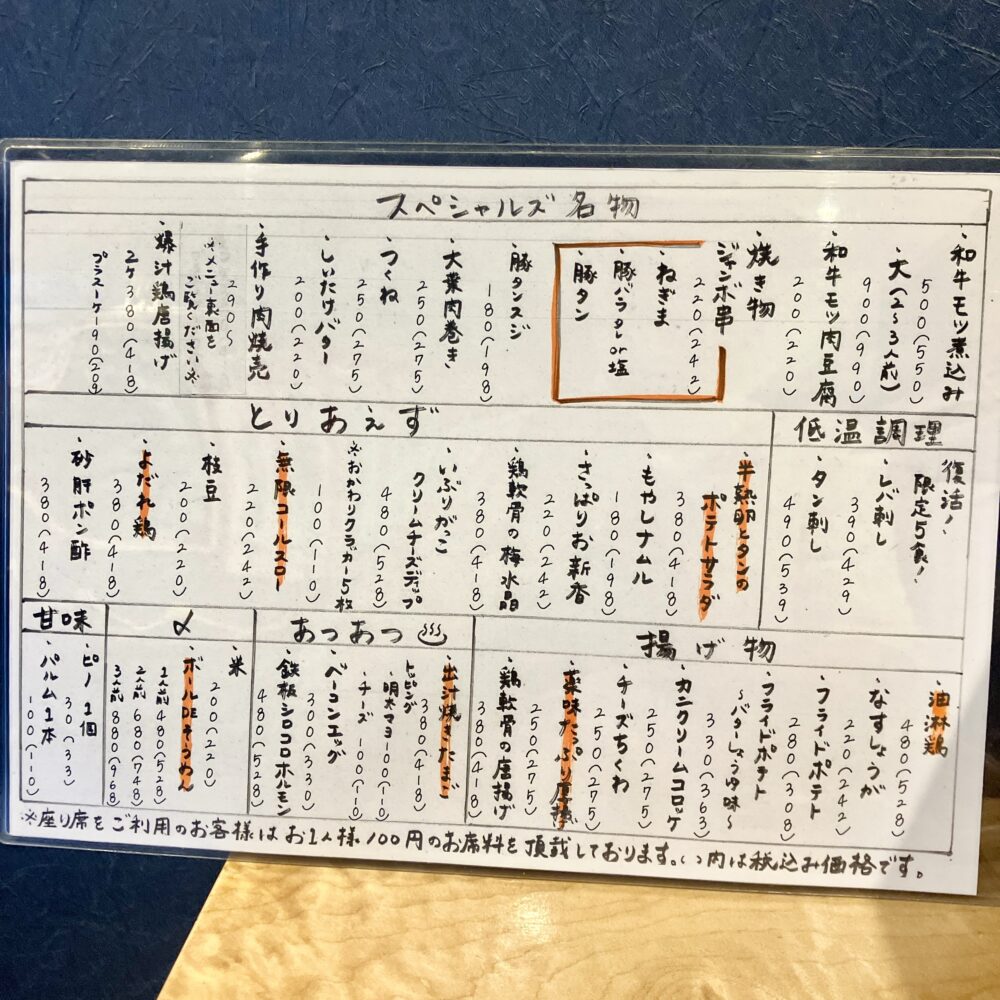 スペシャルズ名物
・和牛モツ煮込み
500(550)
・大(2〜3人前)
900(990)
・和牛モツ肉豆腐
200(220)
・焼き物
ジャンボ串
・ねぎま
220(242)
・豚バラタレor塩
・豚タン
・豚タンスジ
180(198)
・大葉肉巻き
250(275)
・つくね
250(275)
・しいたけバター
200(220)
・手作り肉焼売
290〜
※メニュー裏面を
ご覧ください※
・爆汁鶏唐揚げ
2ケ380(418)
プラス一ケ190(209)
低温調理
復活!
限定5食!
・レバ刺し
390(429)
・タン刺し
490(539)
とりあえず
・半熟卵とタンの
ポテトサラダ
380(418)
・もやしナムル
180(198)
・さっぱりお新香
220(242)
・鶏軟骨の梅水晶
380(418)
・いぶりがっこ
クリームチーズディップ
480(528)
※おかわりクラッカー5枚
100(110)
・無限コールスロー
220(242)
・枝豆
200(220)
・よだれ鶏
380(418)
・砂肝ポン酢
380(418)
揚げ物
・油淋鶏
480(528)
・なすしょうが
220(242)
・フライドポテト
280(308)
・フライドポテト
〜バターしょうゆ味〜
330(363)
・カニクリームコロッケ
250(275)
・チーズちくわ
250(275)
・薬味たっぷり厚揚
250(275)
・鶏軟骨の唐揚げ
380(418)
あつあつ
・出汁焼きたまご
380(418)
トッピング
・明太マヨ100(110)
・チーズ100(110)
・ベーコンエッグ
300(330)
・鉄板シロコロホルモン
480(528)
〆
・米
200(220)
・ボールDEそうめん
1人前480(528)
2人前680(748)
3人前880(968)
甘味
・ピノ1個
30(33)
・パルム1本
100(110)
※座り席をご利用のお客様はお1人様100円のお席料を頂戴しております。( )内は税込み価格です。